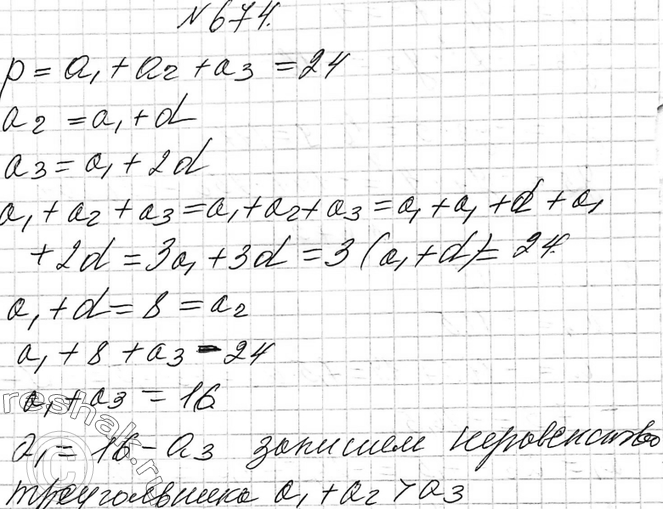 № 674.
p = a₁ + a₂ + a₃ = 24
a₂ = a₁ + d
a₃ = a₁ + 2d
a₁ + a₂ + a₃ = a₁ + a₂ + a₃ = a₁ + a₁ + d + a₁
+ 2d = 3a₁ + 3d = 3(a₁ + d) = 24.
a₁ + d = 8 = a₂
a₁ + 8 + a₃ = 24
a₁ + a₃ = 16
a₁ = 16 - a₃ запишем неровенство
треугольника a₁ + a₂ > a₃
reshak.ru